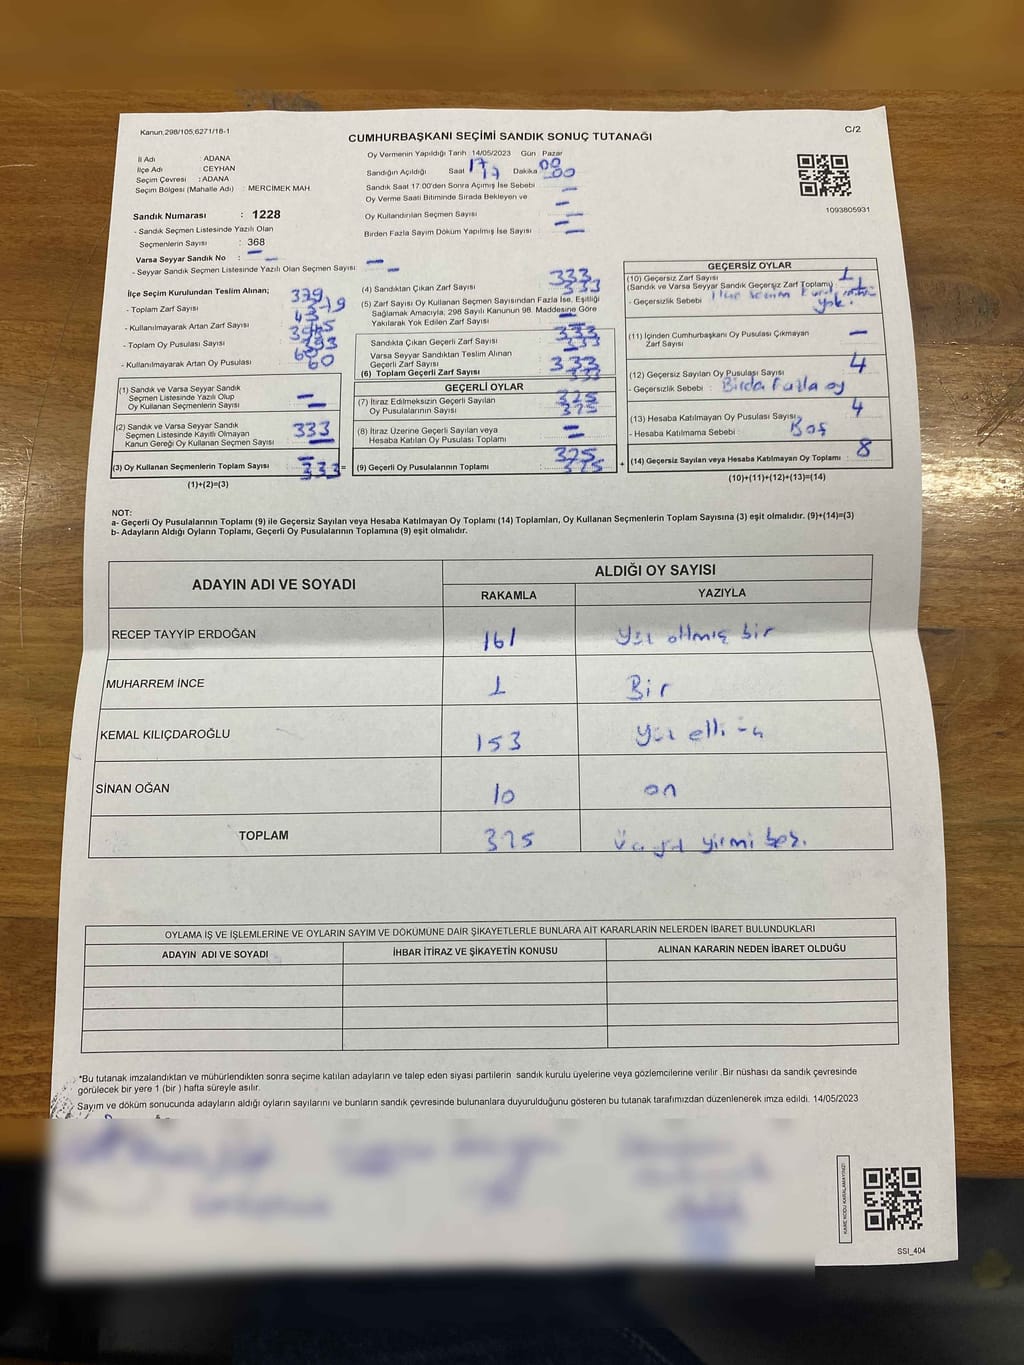 Kanun,298/105,6271/18-1
C/2
CUMHURBAŞKANI SEÇİMİ SANDIK SONUÇ TUTANAĞI
İl Adı ADANA
İlçe Adı CEYHAN
Seçim Çevresi : ADANA
Seçim Bölgesi (Mahalle Adı) : MERCİMEK MAH
Sandık Numarası : 1228
- Sandık Seçmen Listesinde Yazılı Olan
Seçmenlerin Sayısı : 368
Varsa Seyyar Sandık No : —
- Seyyar Sandık Seçmen Listesinde Yazılı Olan Seçmen Sayısı —
Oy Vermenin Yapıldığı Tarih 14/05/2023 Gün Pazar
Sandığın Açıldığı Saat 17 Dakika 00
Sandık Saat 17:00'den Sonra Açımış İse Sebebi —
Oy Verme Saati Bitiminde Sırada Bekleyen ve —
Oy Kullandırılan Seçmen Sayısı —
Birden Fazla Sayım Döküm Yapılmış İse Sayısı —
1093805931
İlçe Seçim Kurulundan Teslim Alınan;
- Toplam Zarf Sayısı
- Kullanılmayarak Artan Zarf Sayısı
- Toplam Oy Pusulası Sayısı
- Kullanılmayarak Artan Oy Pusulası 60
(1) Sandık ve Varsa Seyyar Sandık
Seçmen Listesinde Yazılı Olup
Oy Kullanan Seçmenlerin Sayısı —
(2) Sandık ve Varsa Seyyar Sandık
Seçmen Listesinde Kayıtlı Olmayan
Kanun Gereği Oy Kullanan Seçmen Sayısı 333
(3) Oy Kullanan Seçmenlerin Toplam Sayısı 333 =
(1)+(2)=(3)
(4) Sandıktan Çıkan Zarf Sayısı 333
333
(5) Zarf Sayısı Oy Kullanan Seçmen Sayısından Fazla İse, Eşitliği
Sağlamak Amacıyla, 298 Sayılı Kanunun 98. Maddesine Göre
Yakılarak Yok Edilen Zarf Sayısı —
Sandıkla Çıkan Geçerli Zarf Sayısı 333
333
Varsa Seyyar Sandıktan Teslim Alınan
Geçerli Zarf Sayısı
(6) Toplam Geçerli Zarf Sayısı 333
333
GEÇERLİ OYLAR
(7) İtiraz Edilmeksizin Geçerli Sayılan
Oy Pusulalarının Sayısı 325
375
(8) İtiraz Üzerine Geçerli Sayılan veya
Hesaba Katılan Oy Pusulası Toplamı —
(9) Geçerli Oy Pusulalarının Toplamı 325
375 +
GEÇERSİZ OYLAR
(10) Geçersiz Zarf Sayısı 1
(Sandık ve Varsa Seyyar Sandık Geçersiz Zarf Toplamı) 1
- Geçersizlik Sebebi : İlçe Seçim Kurulu mührü
yok.
(11) İçinden Cumhurbaşkanı Oy Pusulası Çıkmayan
Zarf Sayısı —
(12) Geçersiz Sayılan Oy Pusulası Sayısı 4
- Geçersizlik Sebebi : Birda Fazla oy
(13) Hesaba Katılmayan Oy Pusulası Sayısı 4
- Hesaba Katılmama Sebebi : Boş
(14) Geçersiz Sayılan veya Hesaba Katılmayan Oy Toplamı : 8
(10)+(11)+(12)+(13)=(14)
NOT:
a- Geçerli Oy Pusulalarının Toplamı (9) ile Geçersiz Sayılan veya Hesaba Katılmayan Oy Toplamı (14) Toplamları, Oy Kullanan Seçmenlerin Toplam Sayısına (3) eşit olmalıdır. (9)+(14)=(3)
b- Adayların Aldığı Oyların Toplamı, Geçerli Oy Pusulalarının Toplamına (9) eşit olmalıdır.
ADAYIN ADI VE SOYADI ALDIĞI OY SAYISI
RAKAMLA YAZIYLA
RECEP TAYYİP ERDOĞAN 161 Yüz altmış bir
MUHARREM İNCE 1 Bir
KEMAL KILIÇDAROĞLU 153 Yüz elli üç
SİNAN OĞAN 10 on
TOPLAM 325 Üç yüz yirmi beş.
OYLAMA İŞ VE İŞLEMLERİNE VE OYLARIN SAYIM VE DÖKÜMÜNE DAİR ŞİKAYETLERLE BUNLARA AİT KARARLARIN NELERDEN İBARET BULUNDUKLARI
ADAYIN ADI VE SOYADI İHBAR İTİRAZ VE ŞİKAYETİN KONUSU ALINAN KARARIN NEDEN İBARET OLDUĞU
*Bu tutanak imzalandıktan ve mühürlendikten sonra seçime katılan adayların ve talep eden siyasi partilerin sandık kurulu üyelerine veya gözlemcilerine verilir .Bir nüshası da sandık çevresinde
görülecek bir yere 1 (bir ) hafta süreyle asılır.
Sayım ve döküm sonucunda adayların aldığı oyların sayılarını ve bunların sandık çevresinde bulunanlara duyurulduğunu gösteren bu tutanak tarafımızdan düzenlenerek imza edildi. 14/05/2023
KARE KODU KARALAMAYINIZ!
SSI_404